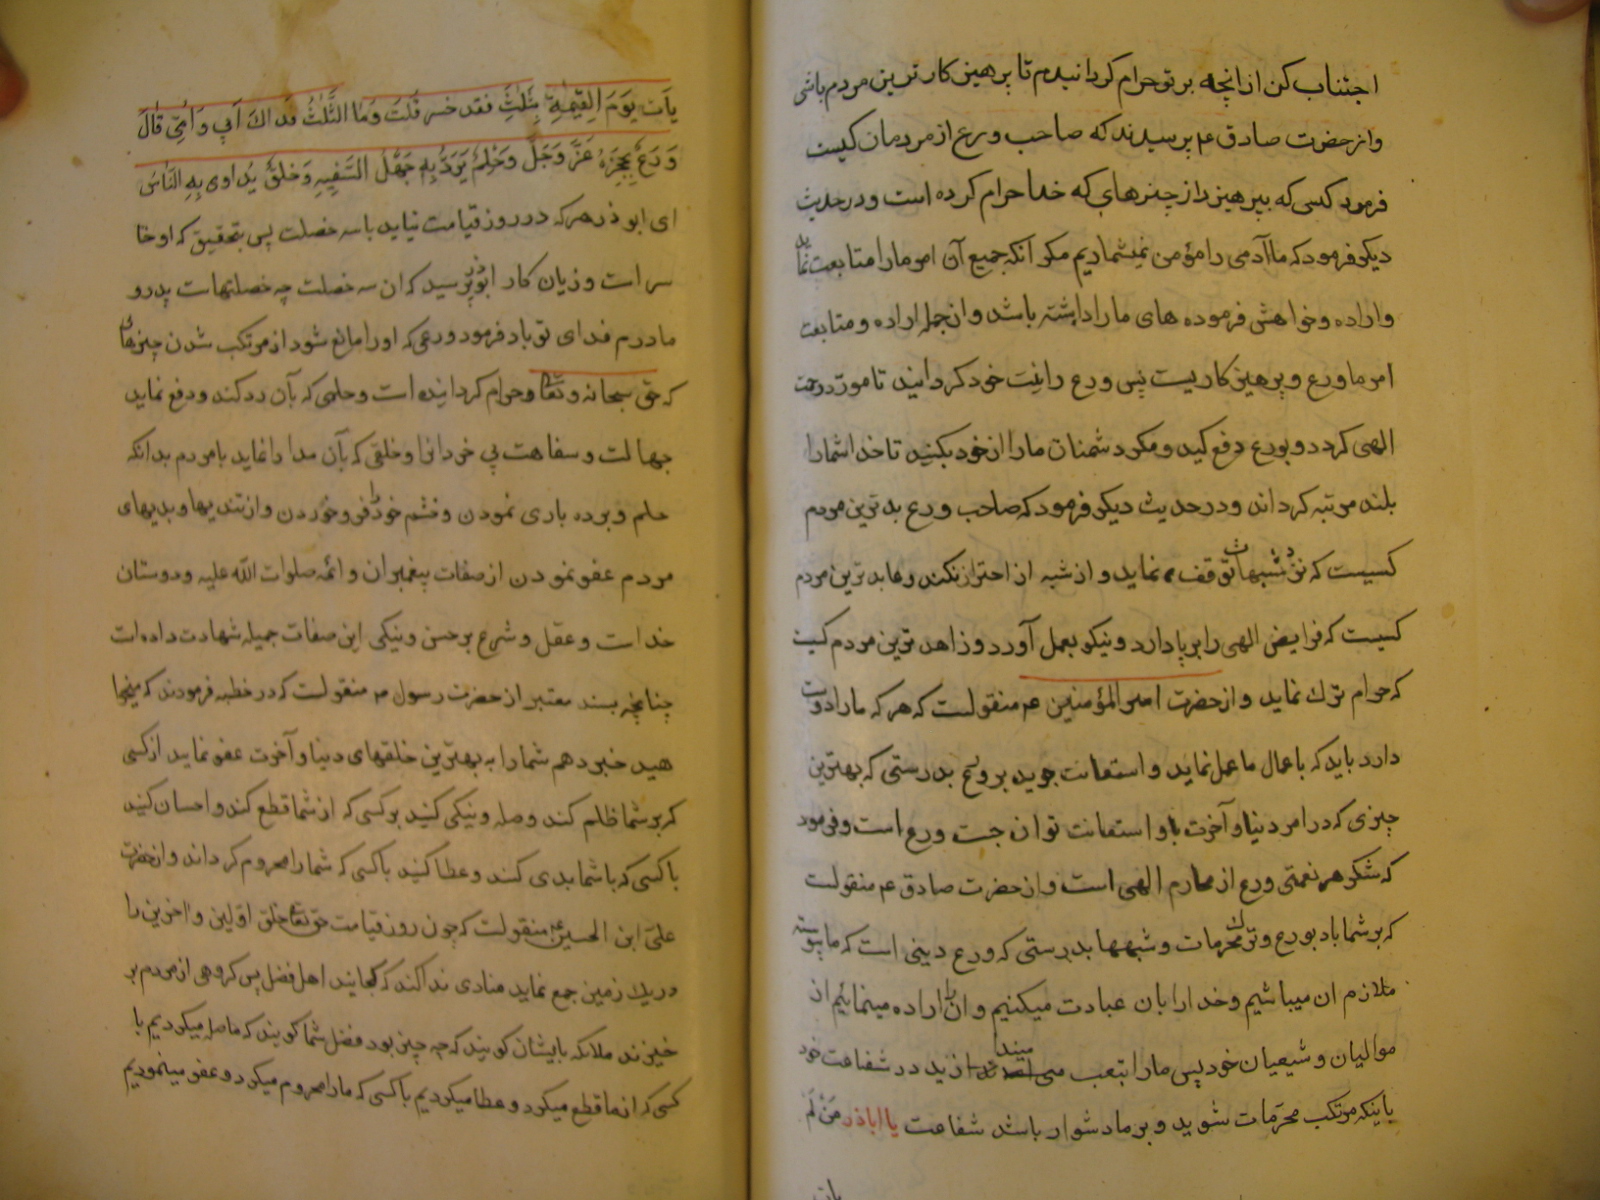 اجتناب کن از انچه بر تو حرام کردانیدم تا پرهیز کارترین مردم باشی
و از حضرت صادق ع م پرسیدند که صاحب ورع از مردمان کیست
فرمود کسی که بپرهیزد از چیزهای که خدا حرام کرده است و در حدیث
دیکر فرمود که ما آدمی را مؤمن نمیشماریم مکر آنکه جمیع آن امر ما را متابعت نماید
و اراده و خواهش فرموده های ما را داشته باشد و از جمله اراده و متابعت
امر ما ورع و پرهیز کاریست پس ورع را زینت خود کردانید تا مورد رحمت
الهی کردد و بورع دفع کید و مکر دشمنان ما را از خود بکنید تا خدا شما را
بلند مرتبه کرداند و در حدیث دیکر فرمود که صاحب ورع بدترین مردم
کسیست که نزد شبهات توقف نماید و از شبه از احتراز نکند و عابدترین مردم
کسیست که فرایض الهی را برپا دارد و نیکو بعمل آورد و زاهدترین مردم کسیست
که حرام ترك نماید و از حضرت امیر المؤمنین ع م منقولست که هر که ما را دوست
دارد باید که باعمال ما عمل نماید و استعانت جوید بر ورع بدرستی که بهترین
چیزی که در امر دنیا و آخرت باو استعانت توان جست ورع است و فرمود
که شکر هر نعمتی ورع از محارم الهی است و از حضرت صادق ع م منقولست
که بر شما باد بورع و ترك محرمات و شبهها بدرستی که ورع دینی است که ما پیوسته
ملازم ان میباشیم و خدا را بان عبادت میکنیم و ان را اراده مینمائیم از
موالیان و شیعیان خود پس ما را بتعب میندازید در شفاعت خود
باینکه مرتکب محرمات شوید و بر ما دشوار باشد شفاعت یا اباذر مَنْ لَمْ
یات
یَاَت یَوْمَ القِیٰمَةِ بِثَلٰثٍ فقد خسر قُلْتَ وَمَا الثَّلٰثُ فداكَ اَبي وَاُمّي قَالَ
وَرَعٌ یحجزهُ عَزَّ وَجَلَّ وَحِلْمٌ یَرُدُّ بِهِ جَهْلُ السَّفِیهِ وَخلقٌ یُداوی بِهِ النَّاسُ
ای ابو ذر هر که در روز قیامت نیاید با سه خصلت پس بتحقیق که او خا
سر است و زیان کار ابوذر پرسید که ان سه خصلت چه خصلتهاست پدر و
مادرم فدای تو باد فرمود ورعی که او را مانع شود از مرتکب شدن چیزها
که حق سبحانه و تعالی حرام کردانیده است و حلمی که بآن رد کند و دفع نماید
جهالت و سفاهت بی خردانرا و خلقی که بآن مدارا نماید بامردم بدانکه
حلم و بردباری نمودن و خشم خود را فرو خوردن و از تندیها و بدیهای
مردم عفو نمودن از صفات پیغمبران و ائمه صلوات الله علیه و دوستان
خداست و عقل و شرع بر حسن و نیکی این صفات جمیله شهادت داده است
چنانچه بسند معتبر از حضرت رسول ص منقولست که در خطبه فرمودند که میخوا
هید خبر دهم شما را به بهترین خلقهای دنیا و آخرت عفو نماید از کسی
که بر شما ظلم کند و صله و نیکی کنید بر کسی که از شما قطع کند و احسان کنید
باکسی که باشما بدی کند و عطا کنید باکسی که شما را محروم کرداند و از حضرت
علی ابن الحسین ع منقولست که چون روز قیامت حق تعالی خلق اولین و اخرین را
در یك زمین جمع نماید منادی ندا کند که کجایند اهل فضل پس کروهی از مردم بر
خیزند ملائکه بایشان کویند که چه چیز بود فضل شما کویند که ما صله میکردیم با
کسی که از ما قطع میکرد و عطا میکردیم باکسی که ما را محروم میکرد و عفو مینمودیم